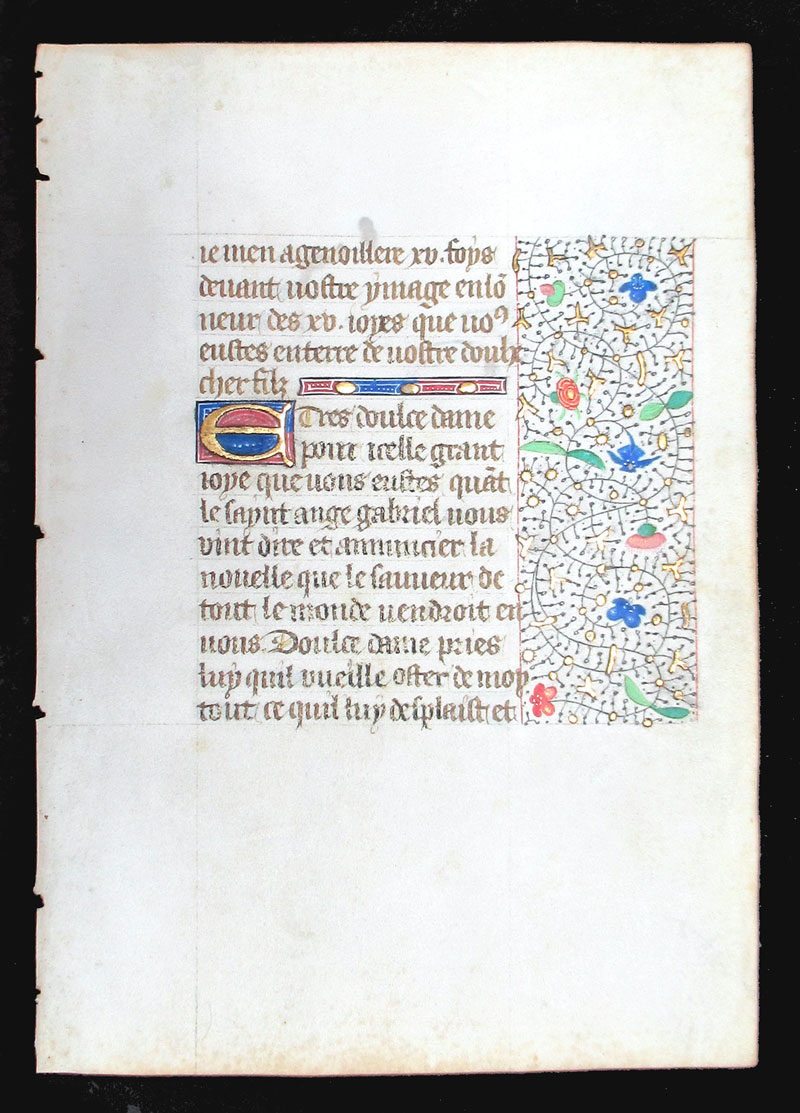 ie men agenoillere xv. foys
devant vostre ymage en lō
neur des xv. ioyes que voꝰ
eustes en terre de vostre doulx
cher filz
E Tres doulce dame
pour icelle grant
ioye que vous eustes quāt
le saynt ange gabriel vous
vint dire et annuncier la
nouelle que le sauueur de
tout le monde vendroit en
vous. Doulce dame pries
luy quil vueille oster de moy
tout ce quil luy desplaist et